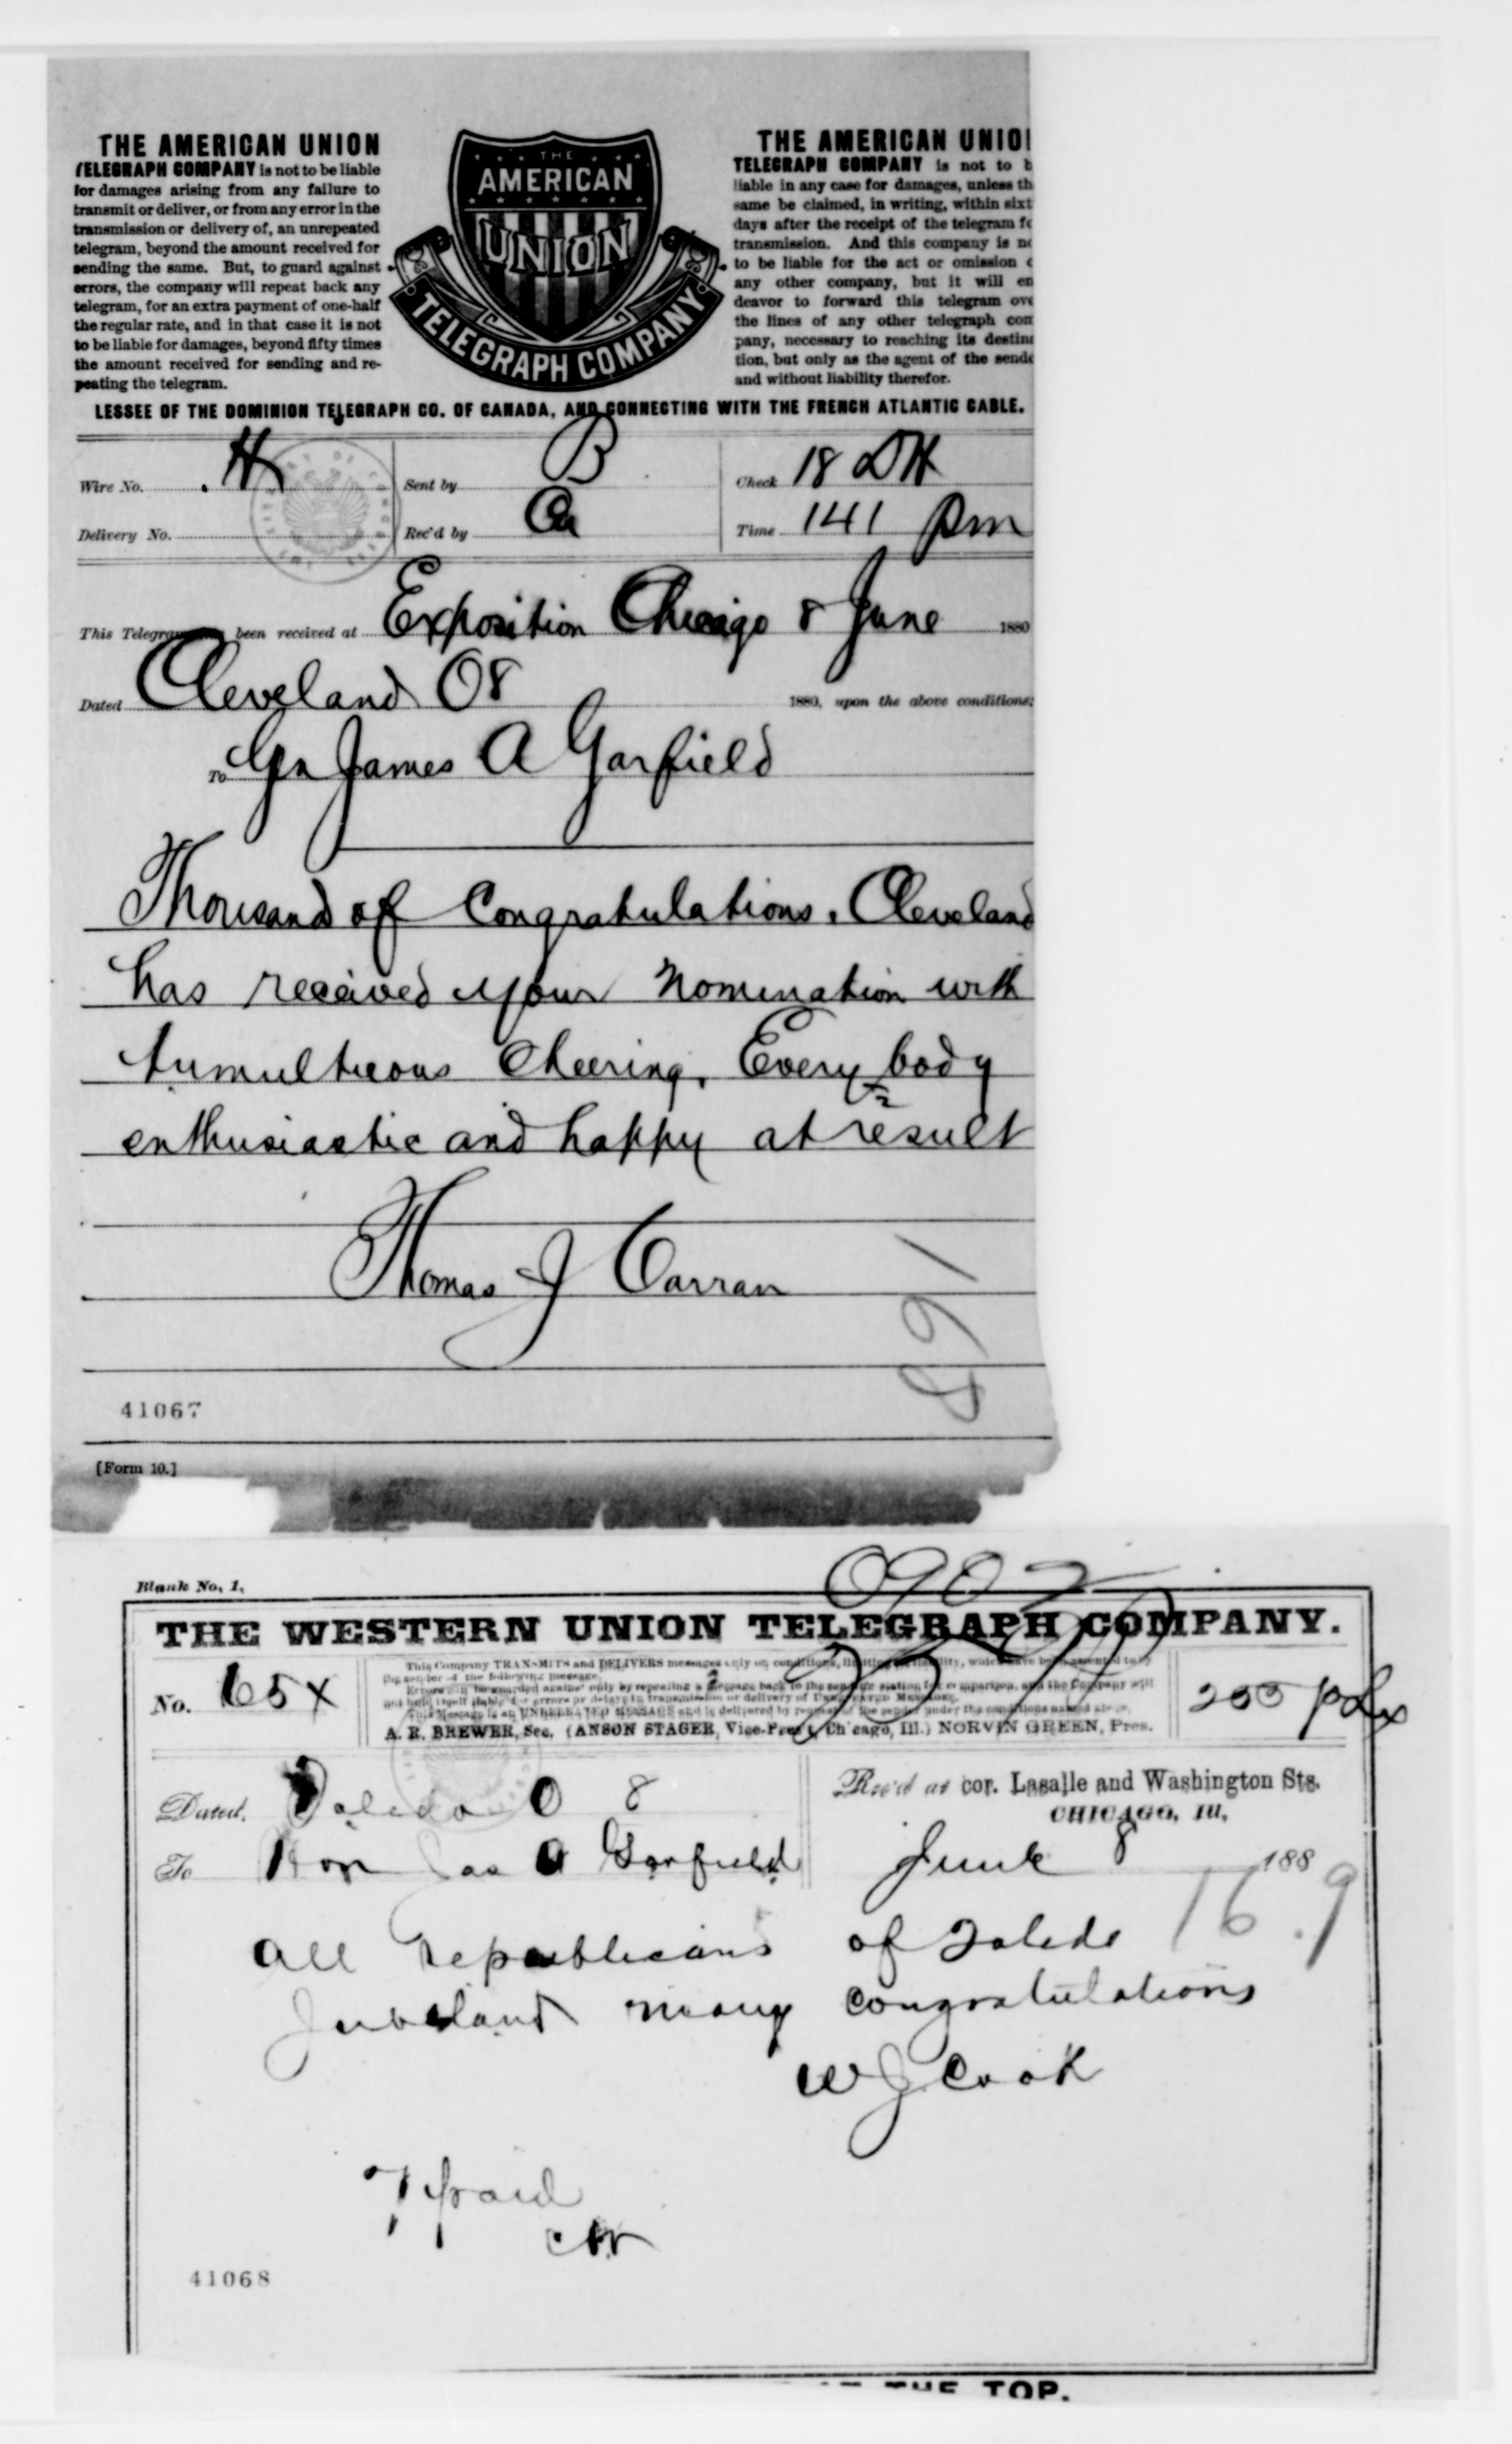 THE AMERICAN UNION
TELEGRAPH COMPANY is not to be liable
for damages arising from any failure to
transmit or deliver, or from any error in the
transmission or delivery of, an unrepeated
telegram, beyond the amount received for
sending the same. But, to guard against
errors, the company will repeat back any
telegram, for an extra payment of one-half
the regular rate, and in that case it is not
to be liable for damages, beyond fifty times
the amount received for sending and re-
peating the telegram.
THE
AMERICAN
UNION
TELEGRAPH COMPANY
THE AMERICAN UNIO
TELEGRAPH COMPANY is not to b
liable in any case for damages, unless th
same be claimed, in writing, within sixt
days after the receipt of the telegram fo
transmission. And this company is no
to be liable for the act or omission o
any other company, but it will en
deavor to forward this telegram ove
the lines of any other telegraph com
pany, necessary to reaching its destina
tion, but only as the agent of the sende
and without liability therefor.
LESSEE OF THE DOMINION TELEGRAPH CO. OF CANADA, AND CONNECTING WITH THE FRENCH ATLANTIC CABLE.
Wire No. H Sent by B Check 18 DH
Delivery No. Rec'd by Time 141 pm
This Telegram been received at Exposition Chicago 8 June 1880
Dated Cleveland O 8 1880, upon the above conditions:
To Gn James A Garfield
Thousand of Congratulations. Cleveland
has received your nomination with
tumultuous cheering. Every body
enthusiastic and happy at result
Thomas J Carran
891
41067
[Form 10.]
Blank No. 1.
THE WESTERN UNION TELEGRAPH COMPANY.
No. 65x
This Company TRANSMITS and DELIVERS messages only on conditions, limiting its liability, which have been assented to by
the sender of the following message.
Errors can be guarded against only by repeating a message back to the sending station for comparison, and the Company will
not hold itself liable for errors or delays in transmission or delivery of UNREPEATED MESSAGES.
This Message is an UNREPEATED MESSAGE and is delivered by request of the sender under the conditions named above.
A. R. BREWER, Sec. (ANSON STAGER, Vice-Pres't, Chicago, Ill.) NORVIN GREEN, Pres.
Dated, Toledo O 8
Rec'd at cor. Lasalle and Washington Sts.
CHICAGO, Ill,
To Hon Jas A Garfield
June 8 188
All republicans of Toledo
Jubelant many congratulations
W J Cook
7 paid
41068
THE TOP.